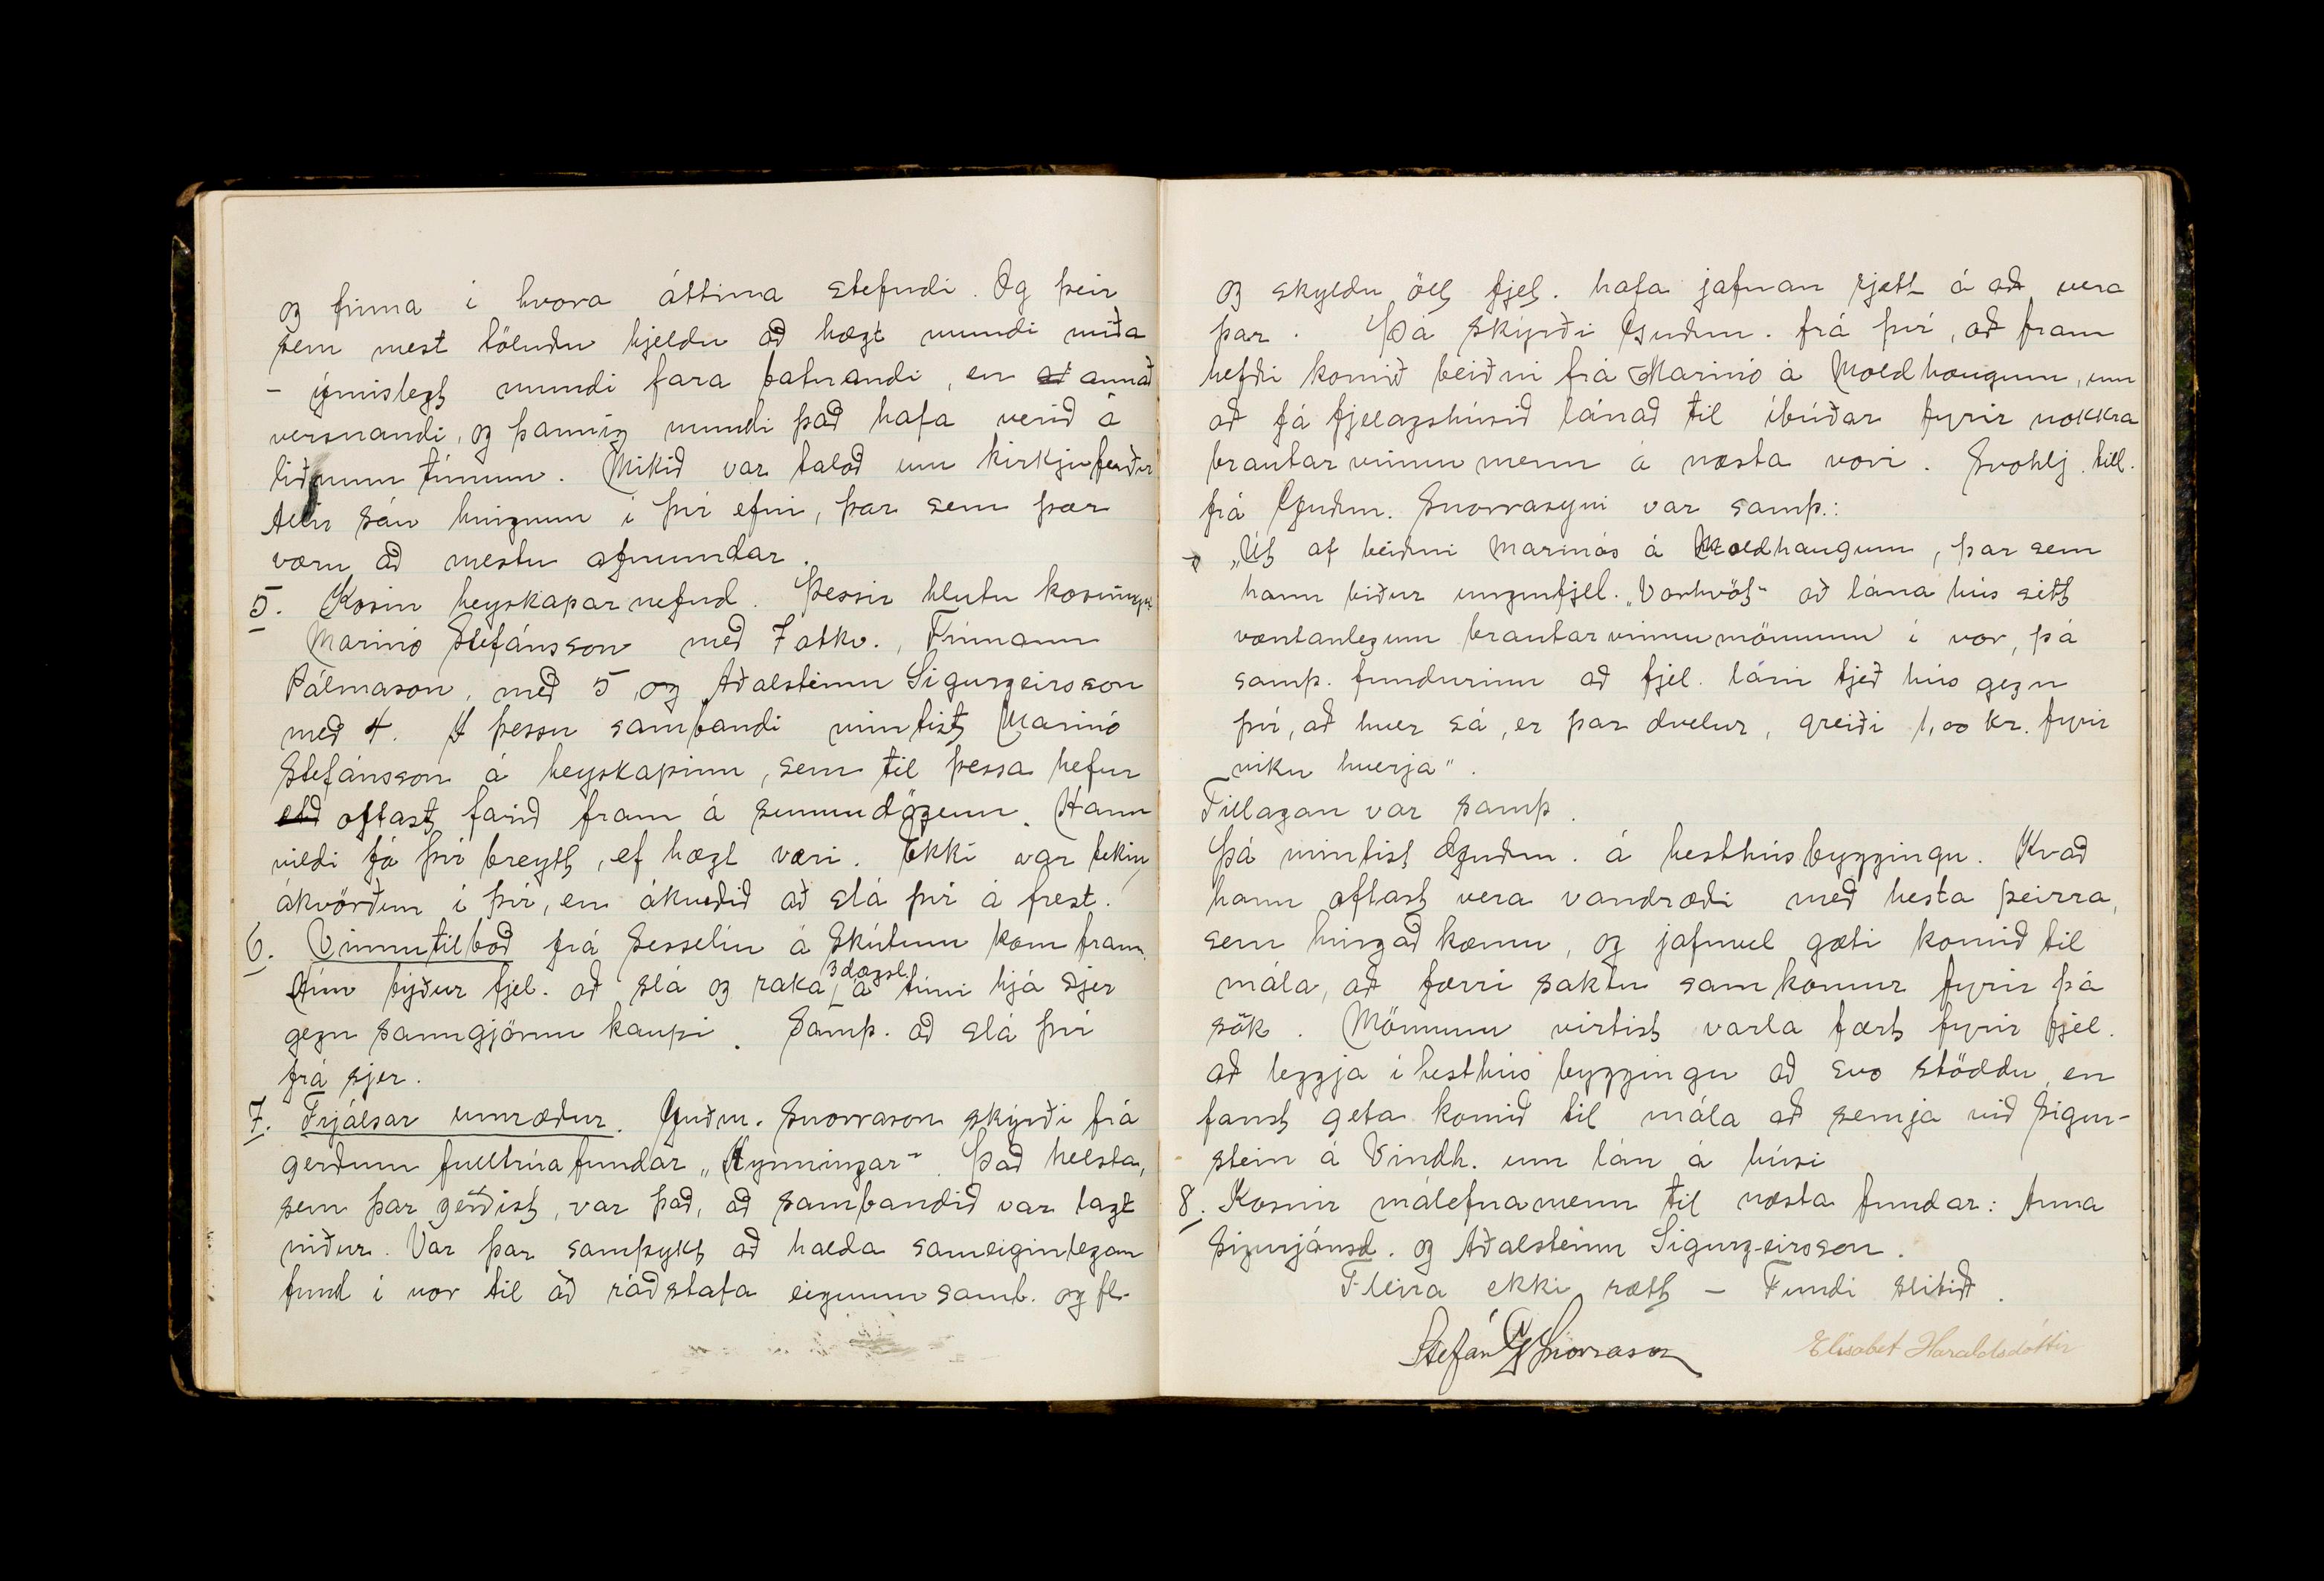 og finna í hvora áttina stefndi. Og þeir
sem mest töluðu hjeldu að hægt mundi miða
- ýmislegt mundi fara batnandi, en at annað
versnandi, og þannig mundi það hafa verið á
liðnum tímum. Mikið var talað um kirkjuferðir
Allir sáu hnignun í því efni, þar sem þær
væru að mestu afnumdar.
5. Kosin heyskaparnefnd. Þessir hlutu kosningu
Marinó Stefánsson með 7 atkv., Finnann
Pálmason, með 5 og Aðalsteinn Sigurgeirsson
með 4. Í þessu sambandi mintist Marinó
Stefánsson á heyskapinn, sem til þessa hefur
oftast farið fram á sunnudögum. Hann
vildi fá því breytt, ef hægt væri. Ekki var tekin
ákvörðun í því, en ákveðið að slá því á frest.
6. Vinnutilboð frá Sesselíu á Skútum kom fram.
Hún býður fjel. að slá og raka 3 dagsl. á túni hjá sjer
gegn sanngjörnu kaupi. Samþ. að slá því
frá sjer.
7. Frjálsar umræður. Guðm. Snorrason skýrði frá
gerðum fulltrúafundar „Kynningar". Það helsta,
sem þar gerðist, var það, að sambandið var lagt
niður. Var þar samþykt að halda sameiginlegan
fund í vor til að ráðstafa eignum samb. og fl.
og skyldu öll fjel. hafa jafnan rjett á að vera
þar. Þá skýrði Guðm. frá því, að fram
hefði komið beiðni frá Marinó á Moldhaugum, um
að fá fjelagshúsið lánað til íbúðar fyrir nokkra
brautarvinnumenn á næsta vori. Svohlj. till.
frá Guðm. Snorrasyni var samþ.:
„Út af beiðni Marinós á Moldhaugum, þar sem
hann biður ungmfjel. „Vorhvöt" að lána hús sitt
væntanlegum brautarvinnumönnum í vor, þá
samþ. fundurinn að fjel. láni tjeð hús gegn
því, að hver sá, er þar dvelur, greiði 1,00 kr. fyrir
viku hverja".
Tillagan var samþ.
Þá mintist Guðm. á hesthúsbyggingu. Kvað
hann oftast vera vandræði með hesta þeirra,
sem hingað kæmu, og jafnvel gæti komið til
mála, að færri sæktu samkomur fyrir þá
sök. Mönnum virtist varla fært fyrir fjel.
að leggja í hesthúsbyggingu að svo stöddu, en
fanst geta komið til mála að semja við Sigur-
stein á Vindh. um lán á húsi
8. Kosnir málefnamenn til næsta fundar: Anna
Sigurjónsd. og Aðalsteinn Sigurgeirsson.
Fleira ekki rætt - Fundi slitið.
Stefán G Snorrason
Elisabet Haraldsdóttir